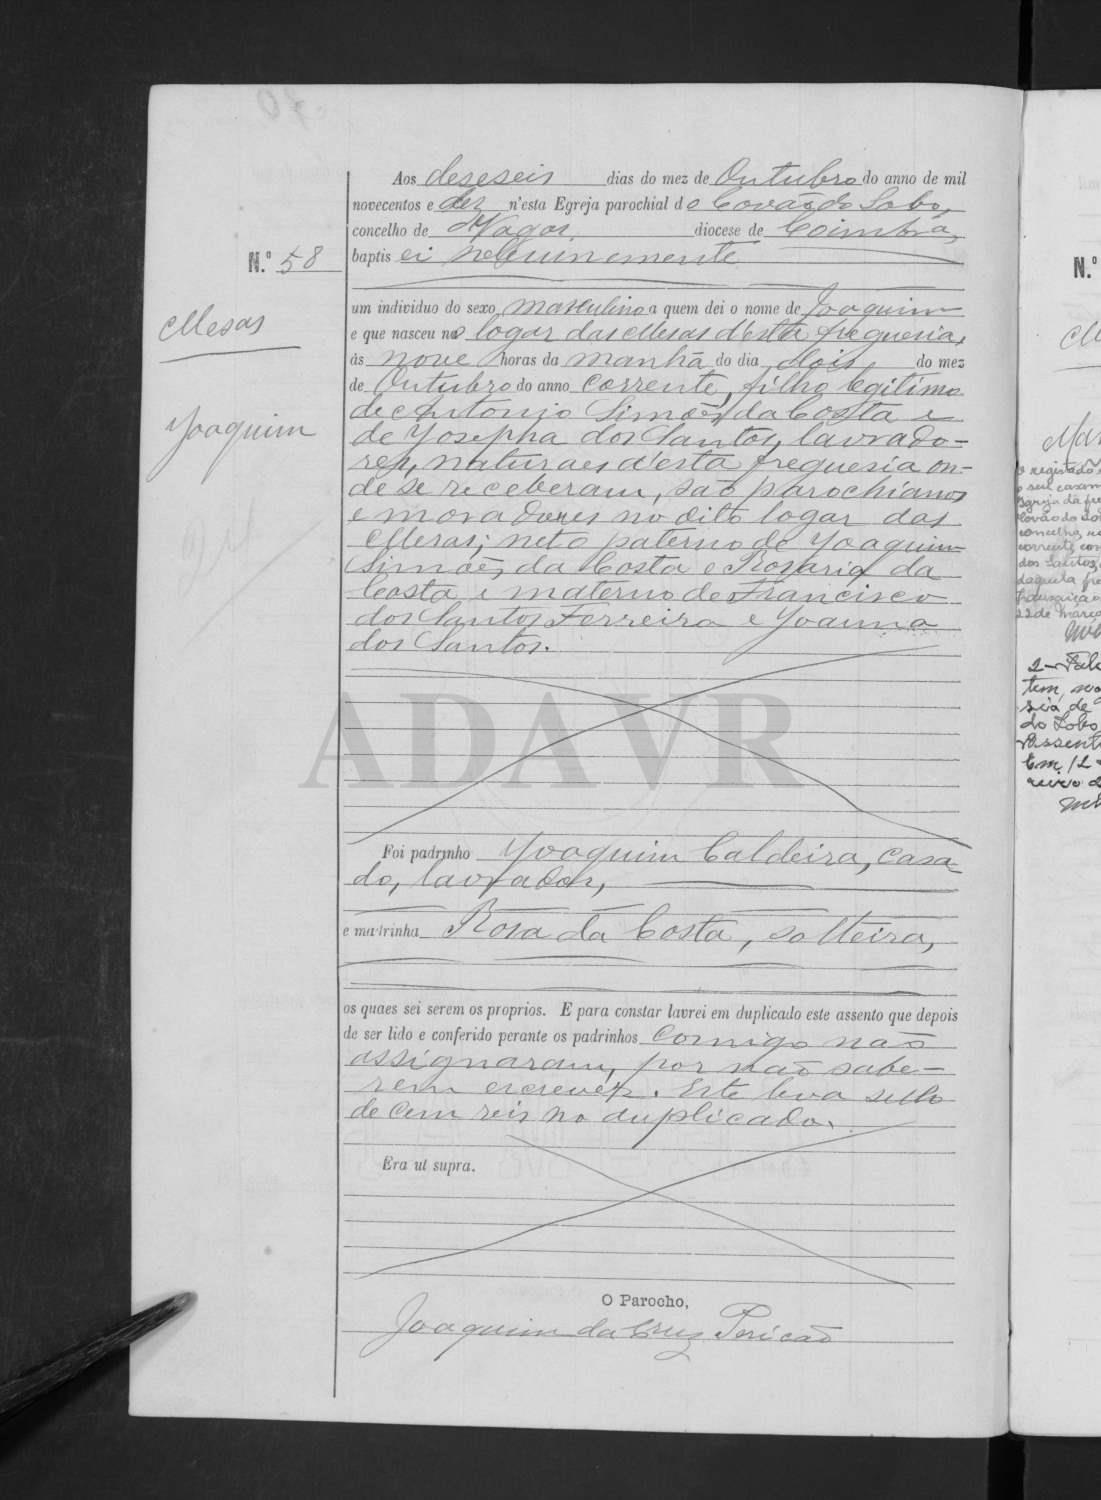 Aos deseseis dias do mez de Outubro do anno de mil
novecentos e dez n'esta Egreja parochial do Covão do Lobo,
concelho de Vagos, diocese de Coimbra,
N.º 58
baptisei solemnemente
um individuo do sexo masculino a quem dei o nome de Joaquim
Mesas
e que nasceu no logar das Mesas d'esta freguesia,
ás nove horas da manhã do dia dois do mez
de Outubro do anno corrente, filho legitimo
de Antonio Simões da Costa e
Joaquim
de Josepha dos Santos, lavrado-
res, naturaes d'esta freguesia on-
de se receberam, são parochianos
e moradores no dito logar das
Mesas; neto paterno de Joaquim
Simões da Costa e Rosaria da
Costa e materno de Francisco
dos Santos Ferreira e Joanna
dos Santos.
ADAVR
Foi padrinho Joaquim Caldeira, casa-
do, lavrador,
e madrinha Rosa da Costa, solteira,
os quaes sei serem os proprios. E para constar lavrei em duplicado este assento que depois
de ser lido e conferido perante os padrinhos comigo não
assignaram, por não sabe-
rem escrever. Este leva sello
de cem reis no duplicado.
Era ut supra.
O Parocho,
Joaquim da Cruz Pericão
N.º
o registado
o seu casam
Egreja da fre
Covão do Lo
concelho
corrente, con
dos Santos,
daquela fre
22 de Março
2-Fale
tem,
sia de
do Lobo,
Assent
Em, 12